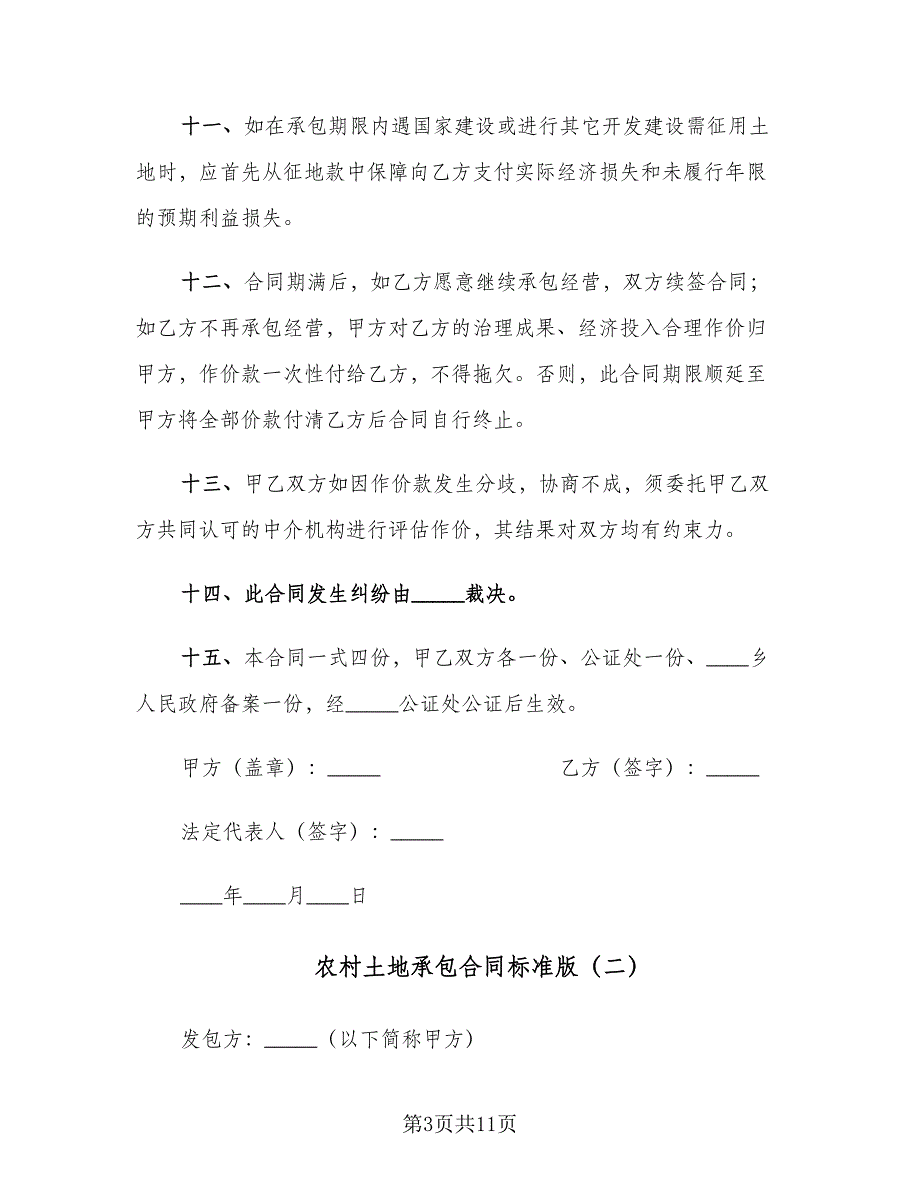 十一、如在承包期限内遇国家建设或进行其它开发建设需征用土
地时，应首先从征地款中保障向乙方支付实际经济损失和未履行年限
的预期利益损失。
十二、合同期满后，如乙方愿意继续承包经营，双方续签合同；
如乙方不再承包经营，甲方对乙方的治理成果、经济投入合理作价归
甲方，作价款一次性付给乙方，不得拖欠。否则，此合同期限顺延至
甲方将全部价款付清乙方后合同自行终止。
十三、甲乙双方如因作价款发生分歧，协商不成，须委托甲乙双
方共同认可的中介机构进行评估作价，其结果对双方均有约束力。
十四、此合同发生纠纷由_____裁决。
十五、本合同一式四份，甲乙双方各一份、公证处一份、____乡
人民政府备案一份，经_____公证处公证后生效。
甲方（盖章）：_____ 乙方（签字）：_____
法定代表人（签字）：_____
____年____月____日
农村土地承包合同标准版（二）
发包方：_____（以下简称甲方）
第3页共11页